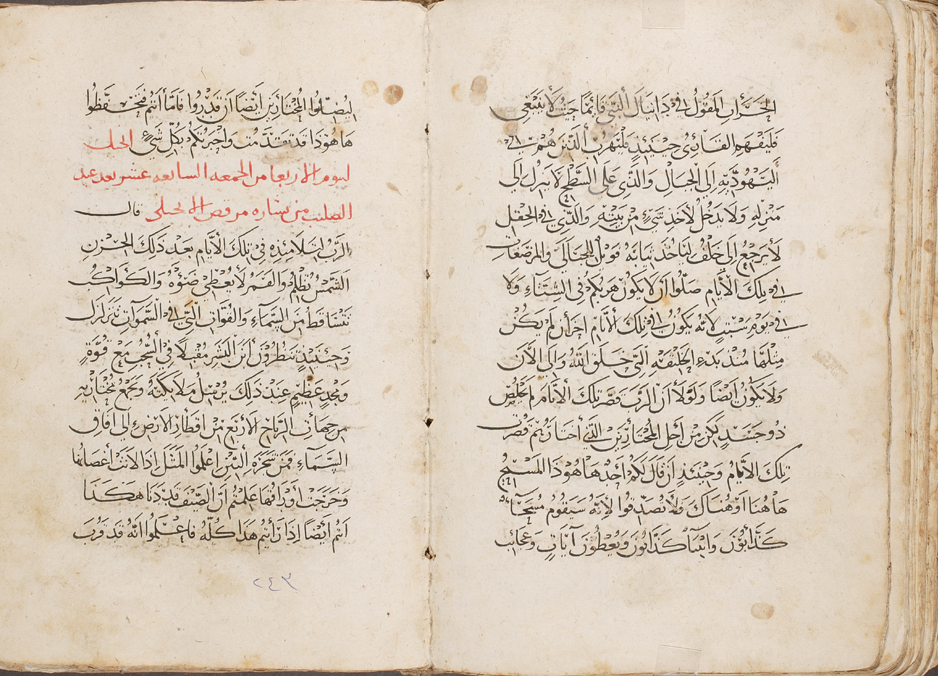 الخراب المقول في دانيال النبي قايمًا حيث لا ينبغي
فليفهم القارئ حينئذٍ فليهرب الذين هم في
اليهوديّة إلى الجبال والذي على السّطح لا ينزل إلى
منزله ولا يدخل لاخذ شيء من بيته والذي في الحقل
لا يرجع إلى خلف لياخذ ثيابه فويل للحبالى والمرضعات
في تلك الأيام صلّوا أن لا يكون هربكم في الشتاء ولا
في يوم سبتٍ لانه يكون في تلك الأيام احزان لم يكن
مثلها منذ بدء الخليقه التي خلق الله وإلى الآن
ولا يكون ايضًا ولولا أن الرب قصّر تلك الأيام لم يخلص
ذو جسد لكن من اجل المختارين الذي أختارهم قصرت
تلك الأيام وحينئذٍ إن قال لكم احد ها هوذا المسيح
هاهنا أو هناك فلا تصدقوا لانه سيقوم مسحآ
كذابون وانبيآ كذابون ويعطون آياتٍ وعجايب
ليضلّوا المختارين ايضًا إن قدروا فامّا أنتم فتحفّظوا
ها هوذا قد تقدّمت واخبرتكم بكل شيء
ليوم الاربعا من الجمعه السابعه عشر بعد عيد
الصليب من بشاره مرقص الانجيلي قال
الرّب لتلاميذه في تلك الأيام بعد ذلك الحزن
الشمس تظلم والقمر لا يعطي ضؤوه والكواكب
تتساقط من السّماء والقوّات التي في السّموات تتزلزل
وحينئذٍ ينظرون ابن البشر مقبلًا في السّحب مع قوّةٍ
ومجدٍ عظيم عند ذلك يرسل ملايكته ويجمع مختاريه
من جهات الرياح الاربع من اقطار الارض إلى افاق
السّماء فمن شجرة التين اعلموا المثل اذا لانت أغصانها
وخرجت أوراقها علمتم أنّ الصّيف قد دنا هكذا
أنتم أيضًا إذا رأيتم هذا كلّه فاعلموا انّه قد قرب
٢٤٣